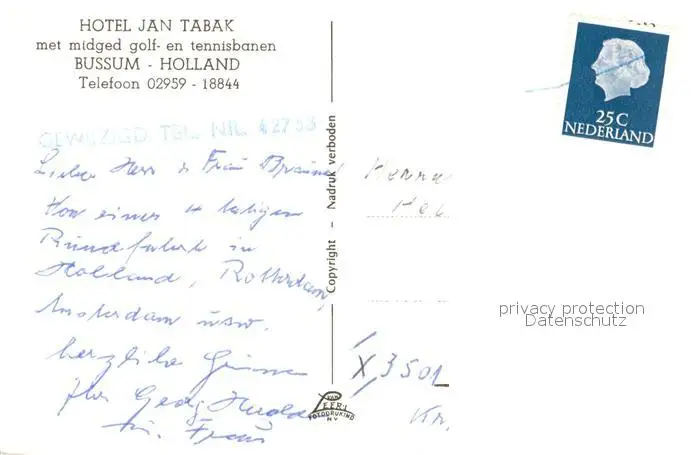 HOTEL JAN TABAK
met midged golf- en tennisbanen
BUSSUM - HOLLAND
Telefoon 02959 - 18844
GEWIJZIGD TEL. NR. 42753
Liebe Herr & Frau
Von einer 4 tätigen
Rundfahrt in
Holland, Rotterdam,
Amsterdam usw.
herzliche Grüsse
Ihr Georg
u. Frau
Copyright - Nadruk verboden
VAN LEER'S
FOTODRUKIND
N.V.
25C
NEDERLAND
X 3501
privacy protection
Datenschutz